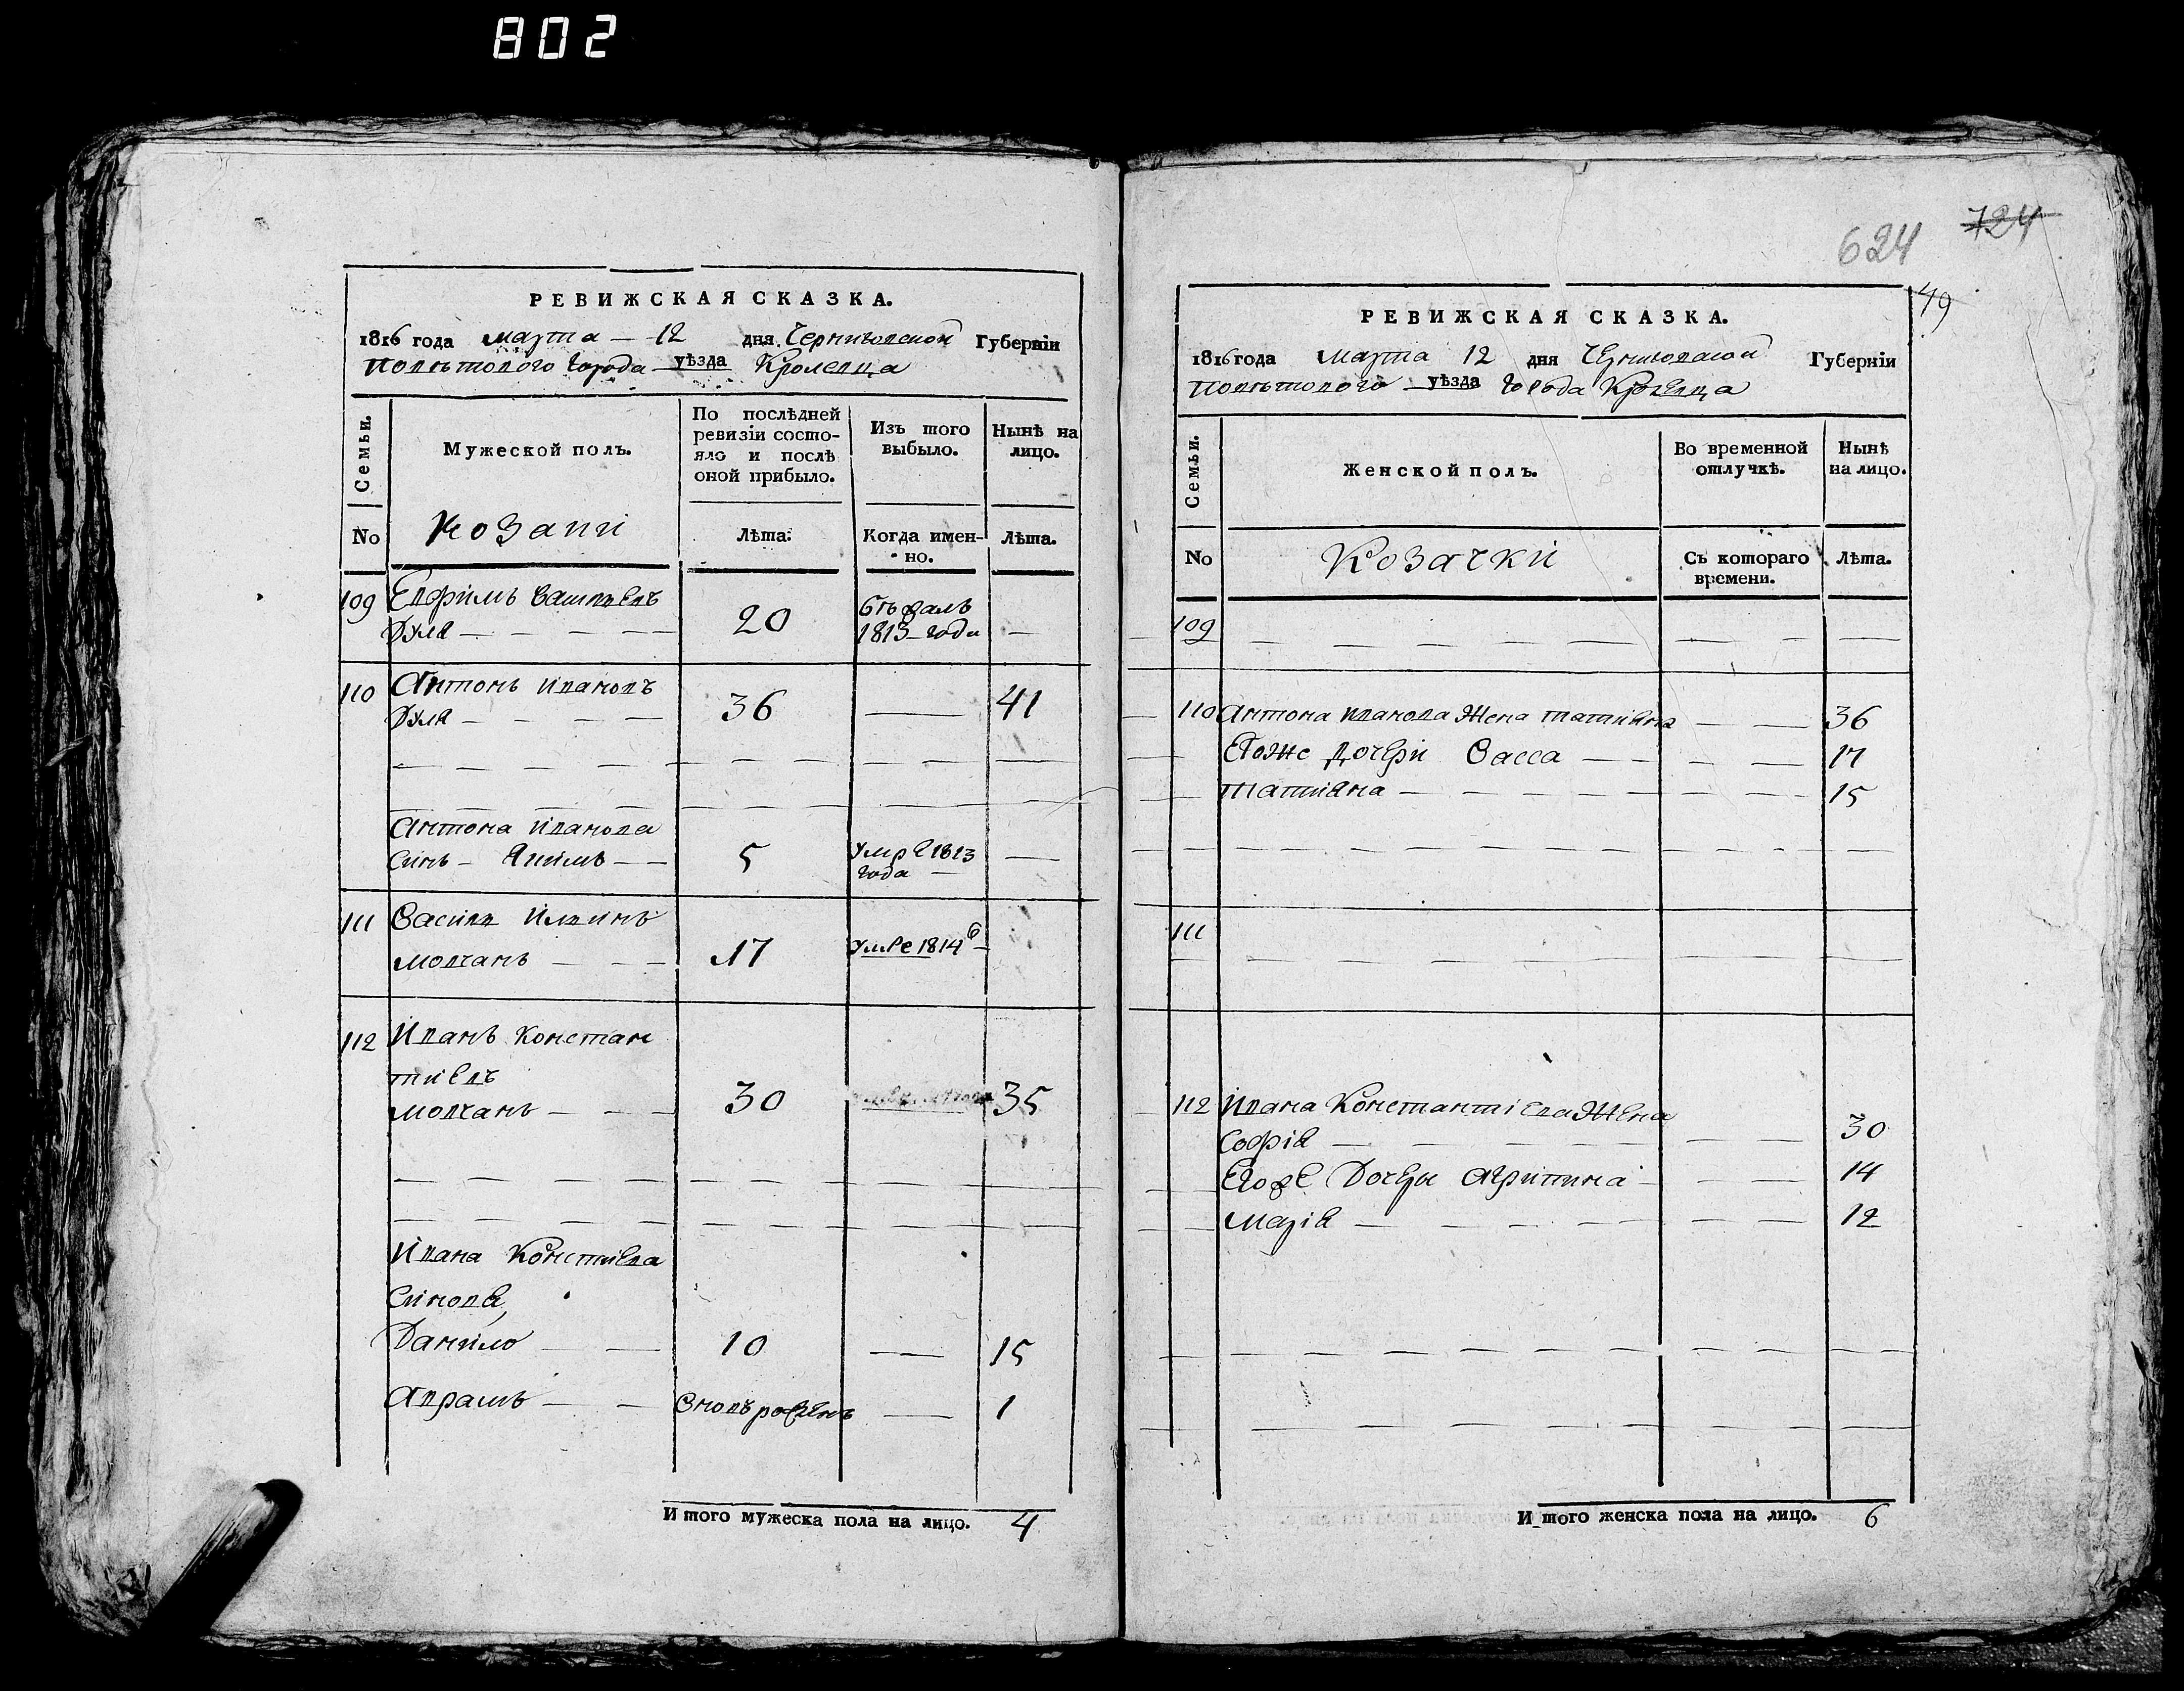 802
РЕВИЖСКАЯ СКАЗКА.
1816 года марта — 12 дня Черниговской Губерніи
Повѣтового города уѣзда Кролевца
Семьи.
Мужеской полъ.
По послѣдней ревизіи состо-
яло и послѣ оной прибыло.
Изъ того выбыло.
Нынѣ на лицо.
No
Козаки
Лѣта.
Когда имен-
но.
Лѣта.
109 Евфимъ
20 бѣжалъ
1813 года —
110 Антонъ Ивановъ
36 — 41
Антона Иванова
Синъ — Якимъ — 5 умре 1813 —
года —
111 Василъ
Мовчанъ — 17 умре 1814
112 Иванъ Констан
тіевъ
Мовчанъ — 30 35
Ивана Констиева
Синовя,
Данило — 10 — 15
Аврамъ — Вновъ рожденъ — 1
Итого мужеска пола на лицо. 4
624 724
49
РЕВИЖСКАЯ СКАЗКА.
1816 года Марта 12 дня Черниговской Губерніи
Повѣтового уѣзда города Кролевца
Семьи.
Женской полъ.
Во временной отлучкѣ.
Нынѣ на лицо.
No
Козачки
Съ котораго времени.
Лѣта.
109 —
110 Антона Иванова Жена татияна — 36
Егоже дочери Васса — 17
татияна — 15
111
112 Ивана Константіева Жена
Софія — 30
Егоже Дочеры Агрипина — 14
Марія — 12
Итого женска пола на лицо. 6